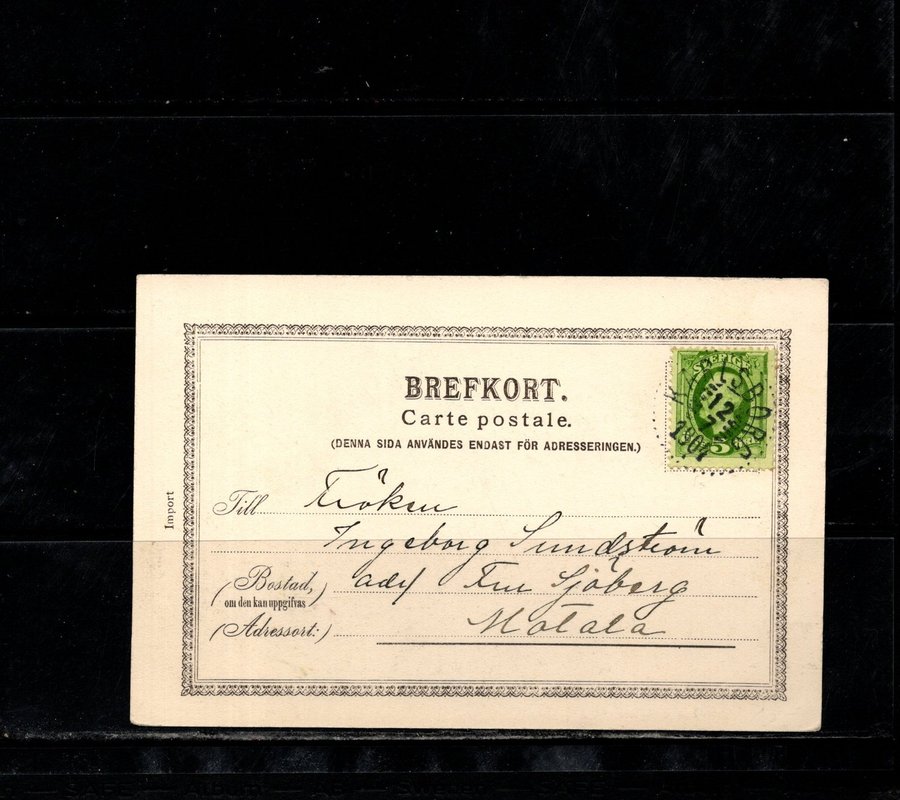 BREFKORT.
Carte postale.
(DENNA SIDA ANVÄNDES ENDAST FÖR ADRESSERINGEN.)
SVERIGE
KARLSBORG
12
1904
5
Import
Till Fröken
Ingeborg Sundström
(Bostad, adr/ Fru Sjöberg
om den kan uppgifvas)
(Adressort:) Motala